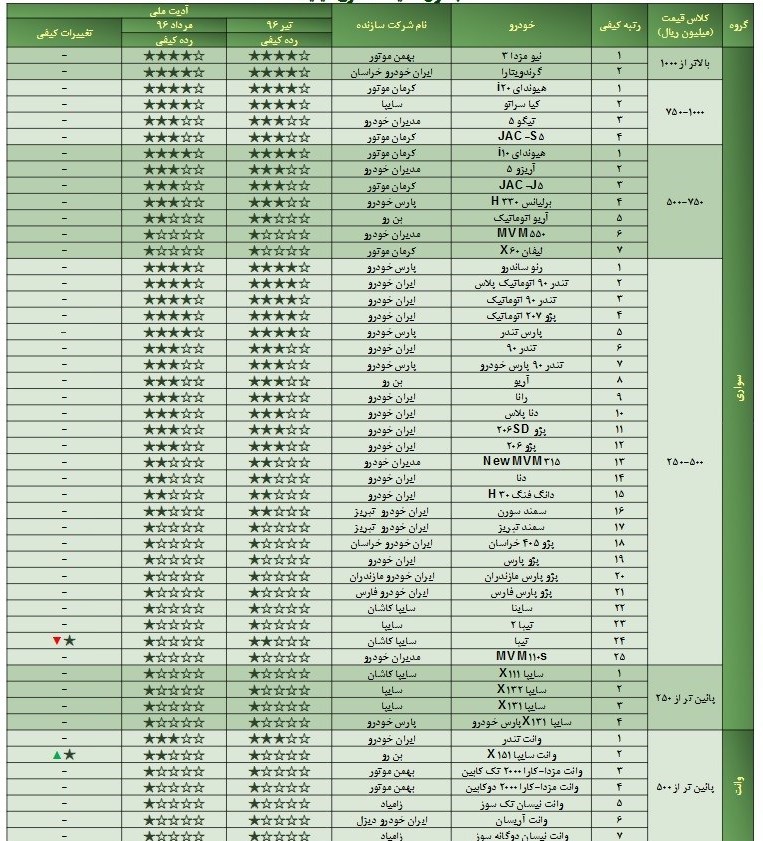 گروه کلاس قیمت (میلیون ریال) رتبه کیفی خودرو نام شرکت سازنده آدیت ملی تغییرات کیفی
تیر ۹۶ مرداد ۹۶
رده کیفی رده کیفی
سواری
بالاتر از ۱۰۰۰
۱ نیو مزدا ۳ بهمن موتور ★★★★☆ ★★★★☆ -
۲ گرندویتارا ایران خودرو خراسان ★★★★☆ ★★★★☆ -
۷۵۰-۱۰۰۰
۱ هیوندای i۲۰ کرمان موتور ★★★★☆ ★★★★☆ -
۲ کیا سراتو سایپا ★★★★☆ ★★★★☆ -
۳ تیگو ۵ مدیران خودرو ★★★☆☆ ★★★☆☆ -
۴ JAC -S۵ کرمان موتور ★★★☆☆ ★★★☆☆ -
۵۰۰-۷۵۰
۱ هیوندای i۱۰ کرمان موتور ★★★★☆ ★★★★☆ -
۲ آریزو ۵ مدیران خودرو ★★★☆☆ ★★★☆☆ -
۳ JAC -J۵ کرمان موتور ★★★☆☆ ★★★☆☆ -
۴ برلیانس H ۳۳۰ پارس خودرو ★★★☆☆ ★★★☆☆ -
۵ آریو اتوماتیک بن رو ★★☆☆☆ ★★☆☆☆ -
۶ MVM۵۵۰ مدیران خودرو ★☆☆☆☆ ★☆☆☆☆ -
۷ لیفان X۶۰ کرمان موتور ★☆☆☆☆ ★☆☆☆☆ -
۲۵۰-۵۰۰
۱ رنو ساندرو پارس خودرو ★★★★☆ ★★★★☆ -
۲ تندر ۹۰ اتوماتیک پلاس ایران خودرو ★★★★☆ ★★★★☆ -
۳ تندر ۹۰ اتوماتیک ایران خودرو ★★★★☆ ★★★★☆ -
۴ پژو ۲۰۷ اتوماتیک ایران خودرو ★★★★☆ ★★★★☆ -
۵ پارس تندر پارس خودرو ★★★★☆ ★★★★☆ -
۶ تندر ۹۰ ایران خودرو ★★★☆☆ ★★★☆☆ -
۷ تندر ۹۰ پارس خودرو پارس خودرو ★★★☆☆ ★★★☆☆ -
۸ آریو بن رو ★★★☆☆ ★★★☆☆ -
۹ رانا ایران خودرو ★★★☆☆ ★★★☆☆ -
۱۰ دنا پلاس ایران خودرو ★★★☆☆ ★★★☆☆ -
۱۱ پژو ۲۰۶SD ایران خودرو ★★★☆☆ ★★★☆☆ -
۱۲ پژو ۲۰۶ ایران خودرو ★★★☆☆ ★★★☆☆ -
۱۳ New MVM۳۱۵ مدیران خودرو ★★☆☆☆ ★★☆☆☆ -
۱۴ دنا ایران خودرو ★★☆☆☆ ★★☆☆☆ -
۱۵ دانگ فنگ H ۳۰ ایران خودرو ★★☆☆☆ ★★☆☆☆ -
۱۶ سمند سورن ایران خودرو تبریز ★★☆☆☆ ★★☆☆☆ -
۱۷ سمند تبریز ایران خودرو تبریز ★☆☆☆☆ ★☆☆☆☆ -
۱۸ پژو ۴۰۵ خراسان ایران خودرو خراسان ★☆☆☆☆ ★☆☆☆☆ -
۱۹ پژو پارس ایران خودرو ★☆☆☆☆ ★☆☆☆☆ -
۲۰ پژو پارس مازندران ایران خودرو مازندران ★☆☆☆☆ ★☆☆☆☆ -
۲۱ پژو پارس فارس ایران خودرو فارس ★☆☆☆☆ ★☆☆☆☆ -
۲۲ ساینا سایپا کاشان ★☆☆☆☆ ★☆☆☆☆ -
۲۳ تیبا ۲ سایپا ★☆☆☆☆ ★☆☆☆☆ -
۲۴ تیبا سایپا کاشان ★★☆☆☆ ★☆☆☆☆ ★▼
۲۵ MVM۱۱۰s مدیران خودرو ★☆☆☆☆ ★☆☆☆☆ -
پائین تر از ۲۵۰
۱ سایپا X۱۱۱ سایپا کاشان ★☆☆☆☆ ★☆☆☆☆ -
۲ سایپا X۱۳۲ سایپا ★☆☆☆☆ ★☆☆☆☆ -
۳ سایپا X۱۳۱ سایپا ★☆☆☆☆ ★☆☆☆☆ -
۴ سایپا X۱۳۱ پارس خودرو پارس خودرو ★☆☆☆☆ ★☆☆☆☆ -
وانت
پائین تر از ۵۰۰
۱ وانت تندر ایران خودرو ★★★☆☆ ★★★☆☆ -
۲ وانت سایپا X ۱۵۱ بن رو ★☆☆☆☆ ★★☆☆☆ ★▲
۳ وانت مزدا-کارا ۲۰۰۰ تک کابین بهمن موتور ★☆☆☆☆ ★☆☆☆☆ -
۴ وانت مزدا-کارا ۲۰۰۰ دوکابین بهمن موتور ★☆☆☆☆ ★☆☆☆☆ -
۵ وانت نیسان تک سوز زامیاد ★☆☆☆☆ ★☆☆☆☆ -
۶ وانت آریسان ایران خودرو دیزل ★☆☆☆☆ ★☆☆☆☆ -
۷ وانت نیسان دوگانه سوز زامیاد ★☆☆☆☆ ★☆☆☆☆ -